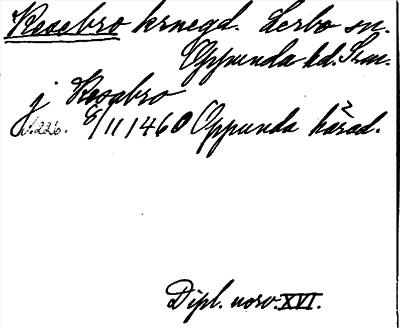 Rosebro krnegd. Lerbo sn.
Oppunda hd. Srm.
j Rosabro
s. 226. 8/11 1460 Oppunda härad.
Dipl. norv. XVI.